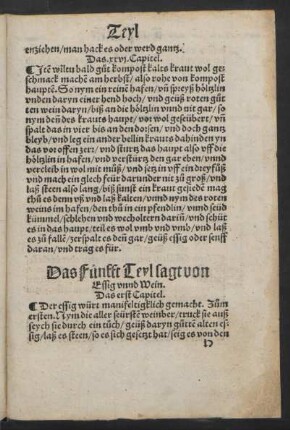 Teyl
enziehen/man hack es oder werd gantz.
Das.xxvj.Capitel.
¶ Jtē wiltu bald gůt kompost kalts kraut wol ge
schmack machē am herbst/also rohe von kompost
haupte. So nym ein reinē hafen/vñ spreyß höltzlin
vnden daryn einer hend hoch/vnd geüß roten gůt
ten wein daryn/biß an die höltzlin vnnd nit gar/so
nym deñ des krauts haupt/vor wol geseübert/vñ
spalt das in vier bis an den dorsen/vnd doch gantz
bleyb/vnd leg ein ander bellin krauts dahinden yn
das vor offen zert/vnd stürtz das haupt also vff die
höltzlin in hafen/vnd verstürtz den gar eben/vnnd
verkleib in wol mit můß/vnd setz in vff ein dreyfůß
vnd mach ein glech feür darunder nit zů groß/vnd
laß steen also lang/biß sunst ein kraut gesiedē mag
thů es dem vß vnd laß kalten/vnnd nym des roten
weins im hafen/den thů in ein pfendlin/vnnd seüd
kümmel/schlehen vnd wecholtern dariñ/vnd schüt
es in das haupt/teil es wol vmb vnd vmb/vnd laß
es zů fallē/zerspalt es deñ gar/geüß essig oder senff
daran/vnd trag es für.
Das Fünfft Teyl sagt von
Essig vnnd Wein.
Das erst Capitel.
¶ Der essig würt manifeltigklich gemacht. Zům
ersten. Nym die aller seürstē weinber/truck sie auß
seych sie durch ein tůch/geüß daryn gůttē alten es
sig/laß es steen/so es sich gesetzt hat/seig es von den
D